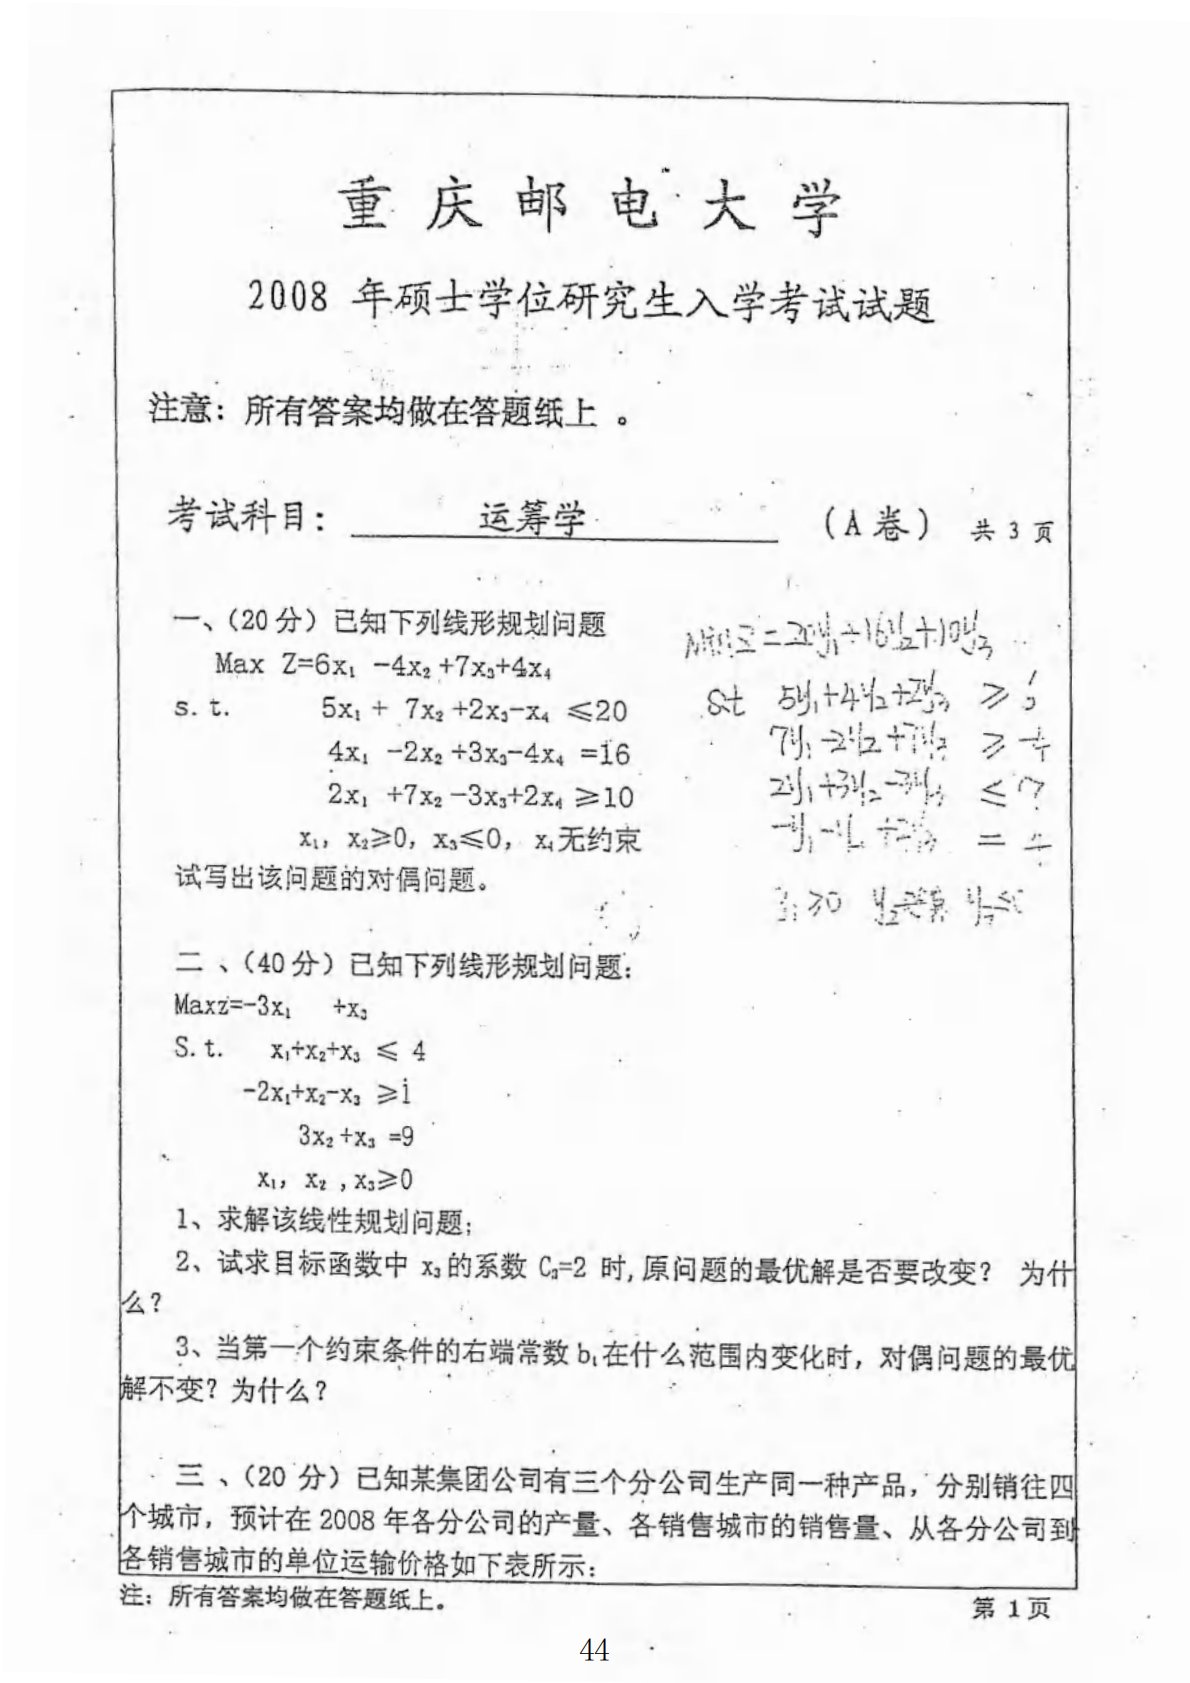 重庆邮电大学
2008 年硕士学位研究生入学考试试题
注意：所有答案均做在答题纸上 。
考试科目： 运筹学 （A卷） 共 3 页
一、（20分）已知下列线形规划问题
Max Z=6x₁ -4x₂ +7x₃+4x₄
s. t. 5x₁ + 7x₂ +2x₃-x₄ ≤20
4x₁ -2x₂ +3x₃-4x₄ =16
2x₁ +7x₂ -3x₃+2x₄ ≥10
x₁， x₂≥0， x₃≤0， x₄无约束
试写出该问题的对偶问题。
Min Z = 20y₁+16y₂+10y₃
s.t 5y₁+4y₂+2y₃ ≥ 6
7y₁-2y₂+7y₃ ≥ -4
2y₁+3y₂-3y₃ ≤ 7
= 4
≥0
二 、（40分）已知下列线形规划问题：
Maxz=-3x₁ +x₃
S. t. x₁+x₂+x₃ ≤ 4
-2x₁+x₂-x₃ ≥1
3x₂ +x₃ =9
x₁， x₂ ，x₃≥0
1、求解该线性规划问题；
2、试求目标函数中 x₃的系数 C₃=2 时，原问题的最优解是否要改变？ 为什
么？
3、当第一个约束条件的右端常数 b₁在什么范围内变化时，对偶问题的最优
解不变？为什么？
三 、（20 分）已知某集团公司有三个分公司生产同一种产品，分别销往四
个城市，预计在 2008 年各分公司的产量、各销售城市的销售量、从各分公司到
各销售城市的单位运输价格如下表所示：
注：所有答案均做在答题纸上。
第 1页
44